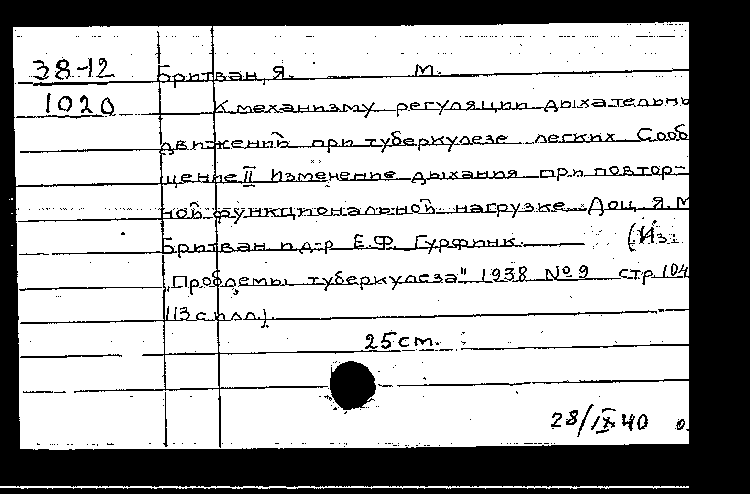 38-12 Бритван, Я. М.
1020 К механизму регуляции дыхательны
движений при туберкулезе легких Сооб
щение II Изменение дыхания при повтор-
ной функциональной нагрузке. Доц. Я. М
Бритван и д-р Е.Ф. Гурфинк. (Из:
„Проблемы туберкулеза" 1938 № 9 стр 104
113 с илл.).
25 см.
28/IX 40 о.